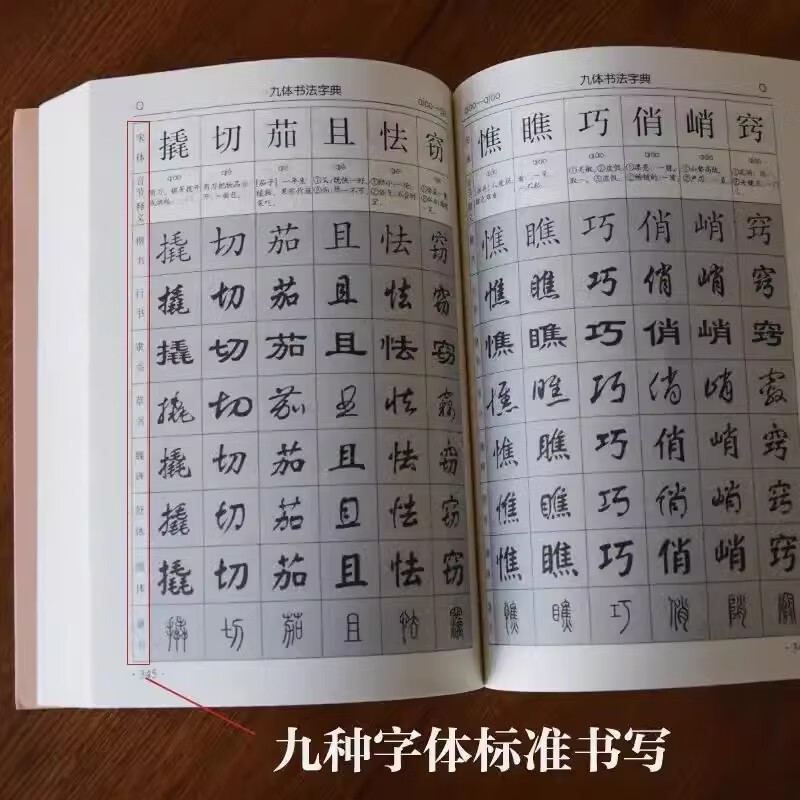 九体书法字典
Q
宋体 撬 切 茄 且 怯 窃
音节释义
楷书 撬 切 茄 且 怯 窃
行书 撬 切 茄 且 怯 窃
隶书 撬 切 茄 且 怯 窃
草书 撬 切 茄 且 怯 窃
魏碑 撬 切 茄 且 怯 窃
舒体 撬 切 茄 且 怯 窃
颜体 撬 切 茄 且 怯 窃
篆书 撬 切 茄 且 怯 竊
· 345 ·
九体书法字典
Q
憔 瞧 巧 俏 峭 窍
憔 瞧 巧 俏 峭 窍
憔 瞧 巧 俏 峭 窍
憔 瞧 巧 俏 峭 窍
憔 瞧 巧 俏 峭 竅
憔 瞧 巧 俏 峭 窍
憔 瞧 巧 俏 峭 窍
憔 瞧 巧 俏 峭 窍
憔 瞧 巧 俏 陗
九种字体标准书写